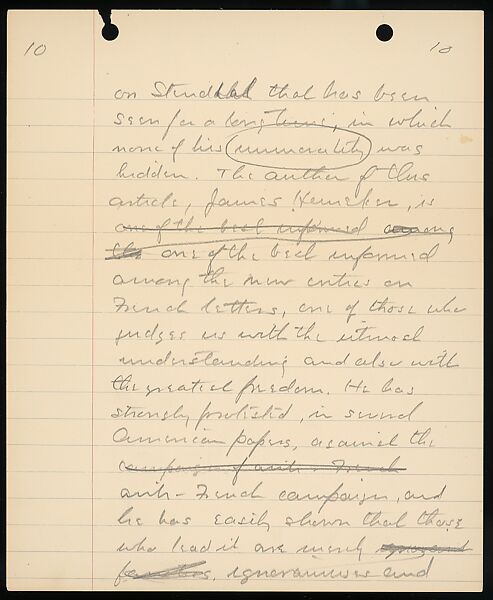 10 10
on Stendhal that has been
seen for a long time, in which
none of his immorality was
hidden. The author of this
article, James Huneker, is
one of the best informed among
the one of the best informed
among the new critics on
French letters, one of those who
judges us with the utmost
understanding and also with
the greatest freedom. He has
strongly protested, in several
American papers, against the
campaign of anti-French
anti-French campaign, and
he has easily shown that those
who lead it are merely ignorant
ignoramuses and